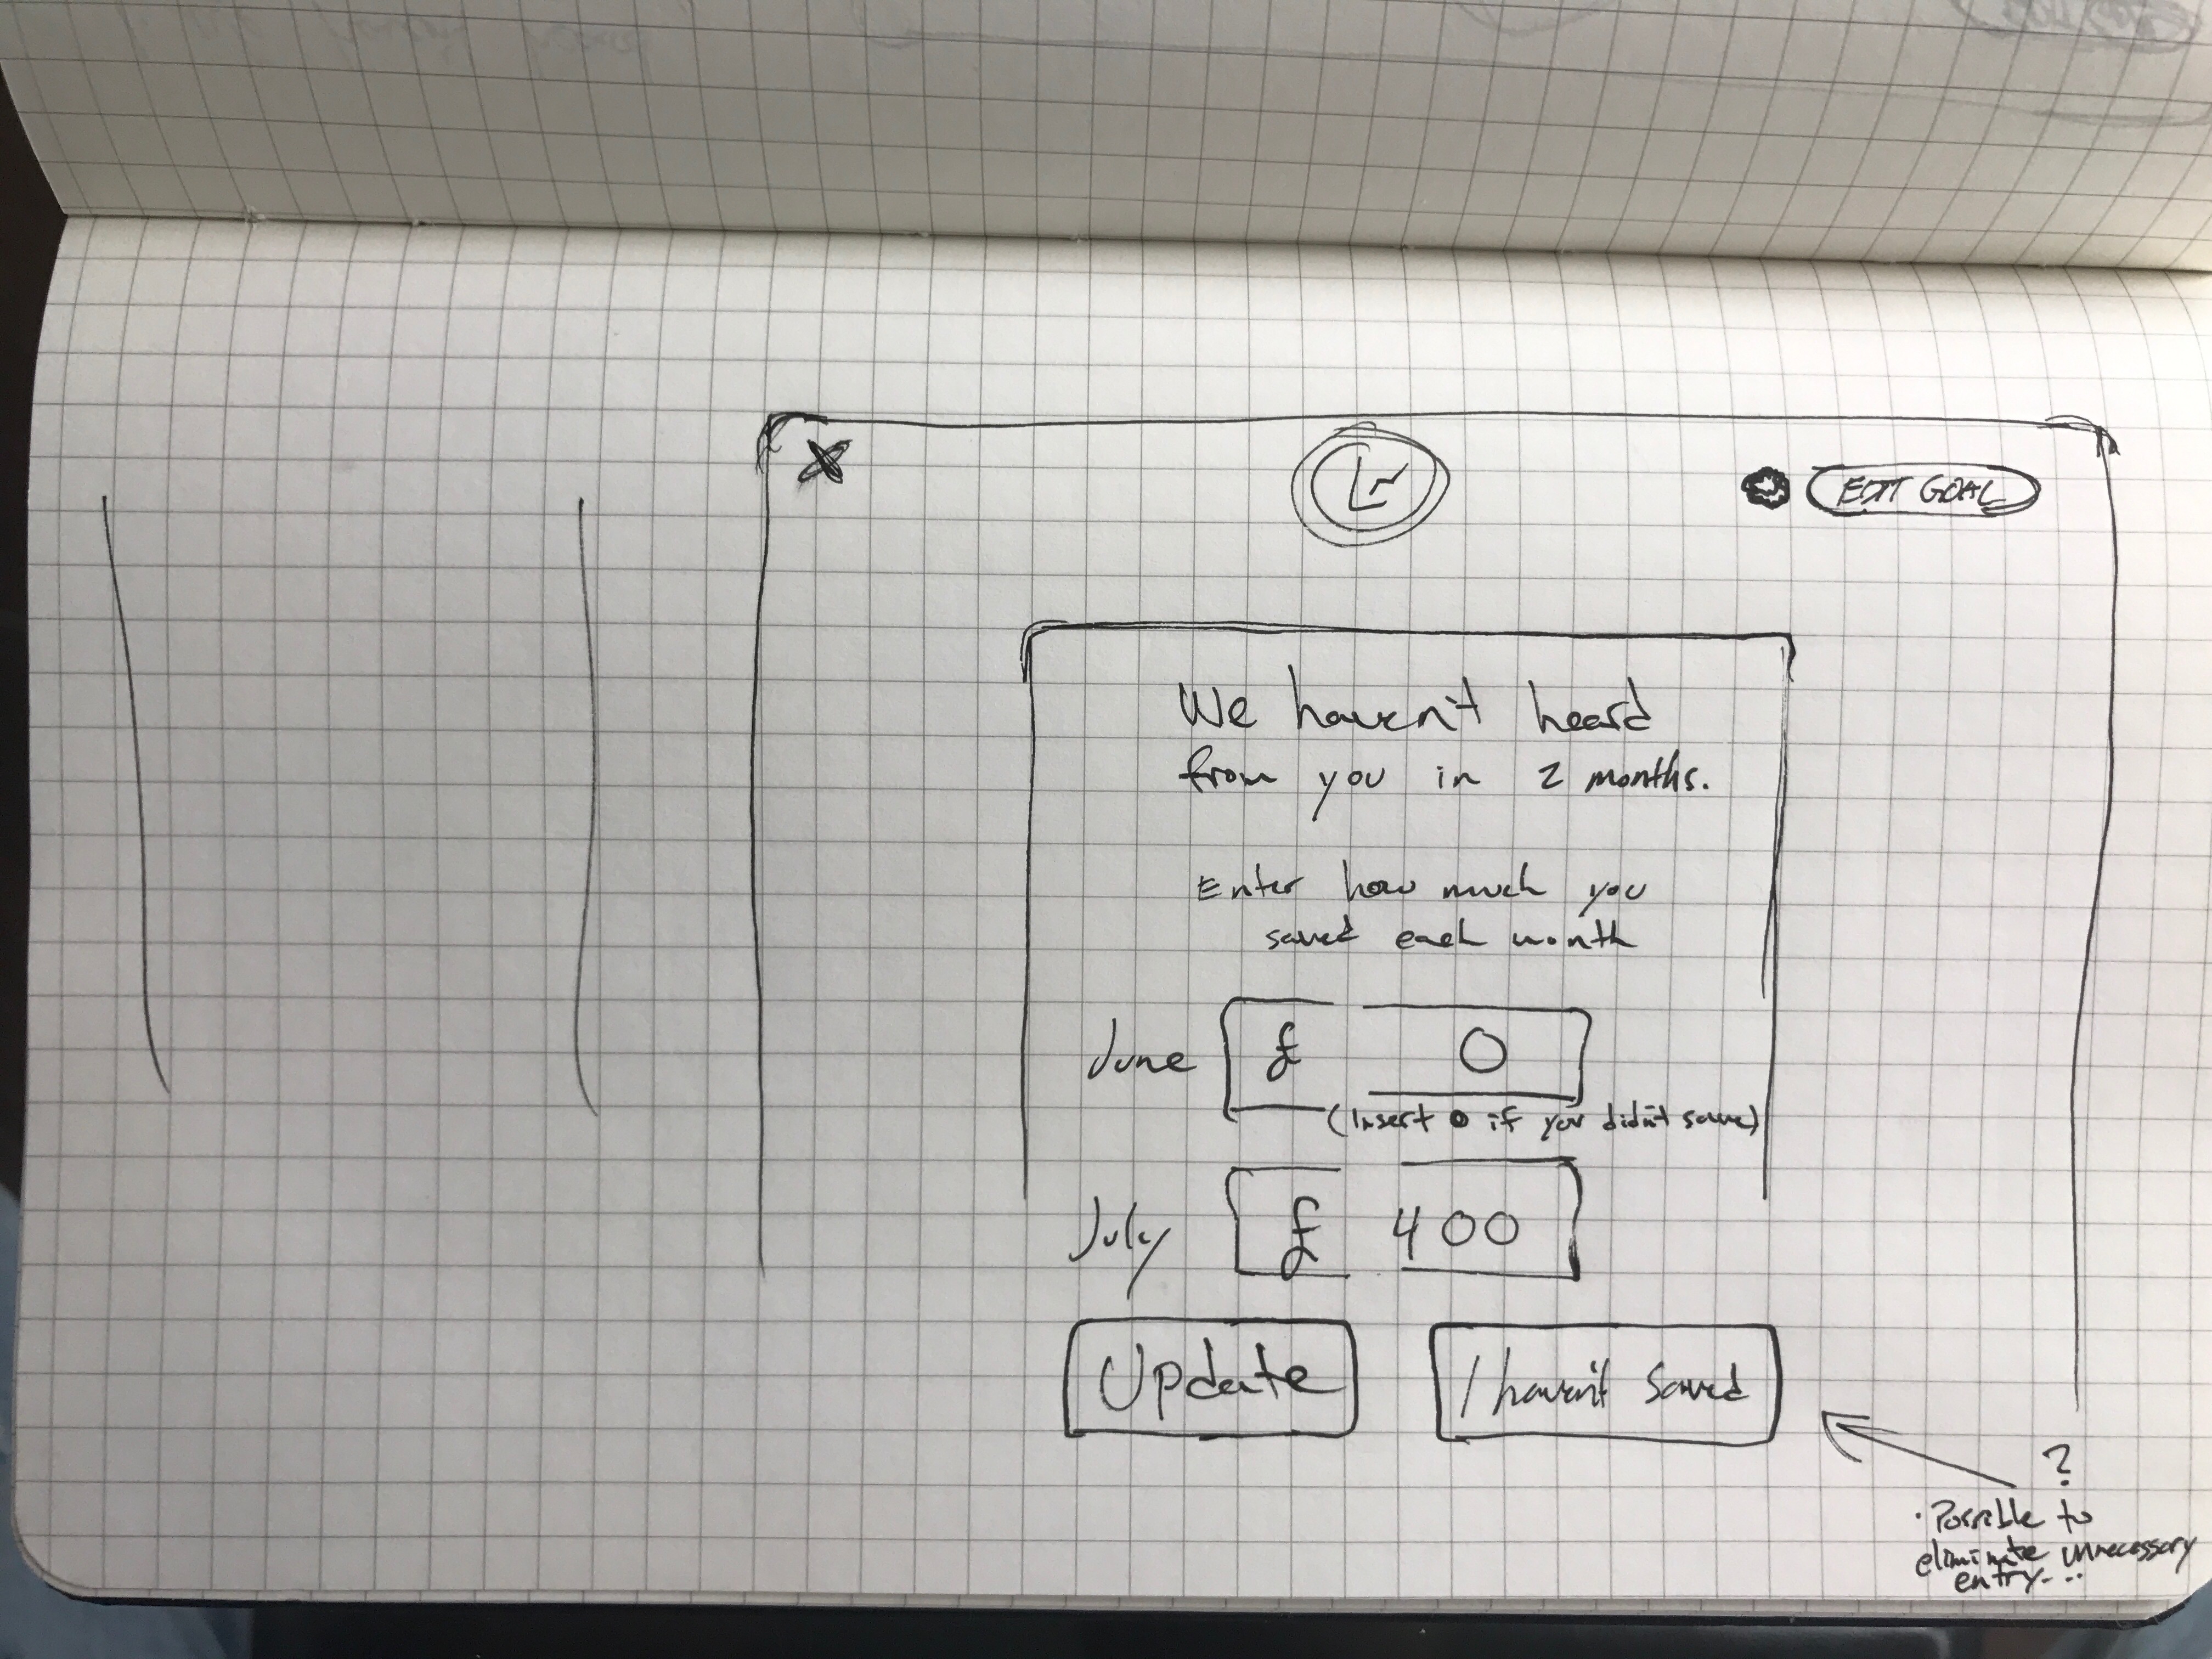 EDIT GOAL
We haven't heard
from you in 2 months.
Enter how much you
saved each month
June £ 0
(Insert 0 if you didn't save)
July £ 400
Update
I haven't saved
?
· Possible to
eliminate unnecessary
entry...